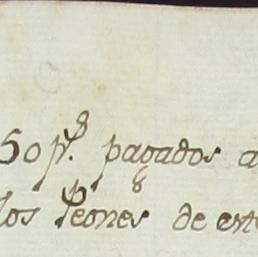 50 p.s pagados a
los Peones de est